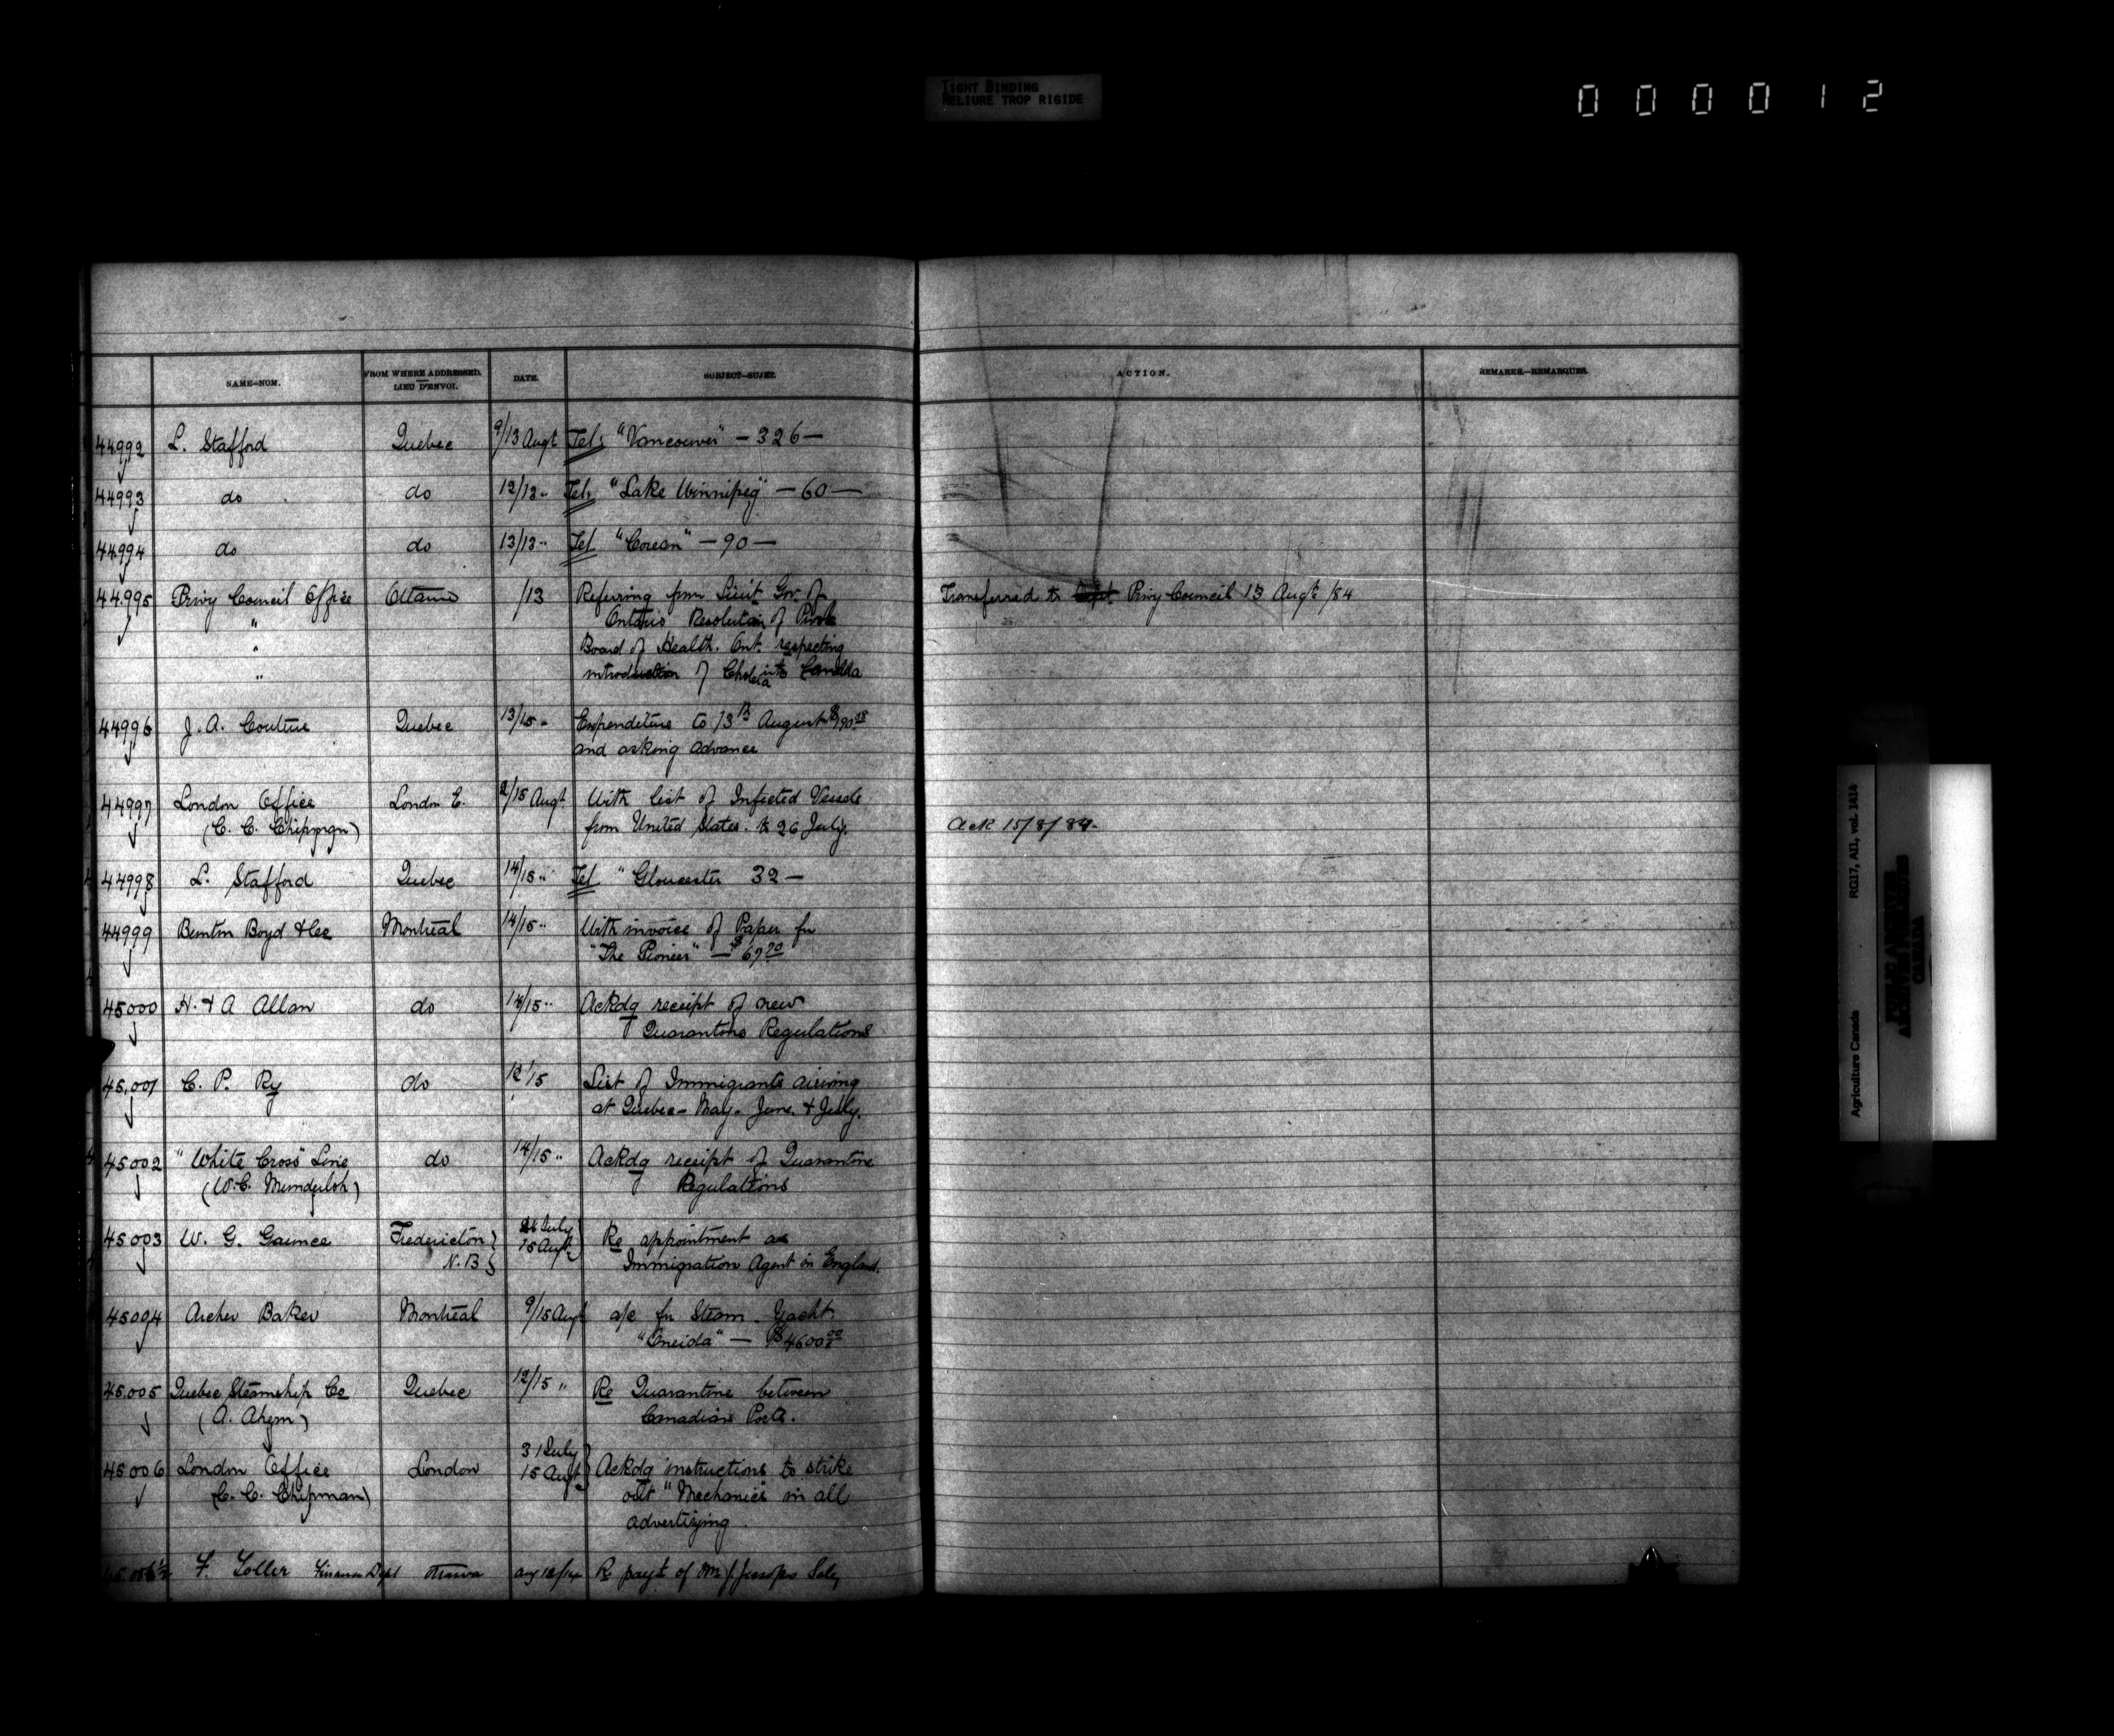 TIGHT BINDING
RELIURE TROP RIGIDE
000012
NAME—NOM. FROM WHERE ADDRESSED. LIEU D'ENVOI. DATE. SUBJECT—SUJET. ACTION. REMARKS.—REMARQUES.
44992 L. Stafford Quebec 9/13 Augt Tel: "Vancouver" — 326 —
44993 do do 12/13 " Tel: "Lake Winnipeg" — 60 —
44994 do do 13/13 " Tel "Corean" — 90 —
44995 Privy Council Office Ottawa /13 Referring from Lieut Gov. of Transferred to Privy Council 13 Augt /84
" Ontario Resolution of
" Board of Health. Ont. respecting
" introduction of Cholera into Canada
44996 J. A. Couture Quebec 13/15 " Expenditure to 13th August
and asking advance
44997 London Office London E. 2/15 Augt With list of Infected Vessels
(C. C. Chipman) from United States. to 26 July. Ack 15/8/84.
44998 L. Stafford Quebec 14/15 " Tel "Gloucester 32 —
44999 Buntin Boyd & Co Montreal 14/15 " With invoice of Paper for
"The Pioneer" — $67.70
45000 H. & A Allan do 14/15 " Ackdg receipt of new
Quarantine Regulations
45,001 C. P. Ry do 12/15 List of Immigrants arriving
at Quebec - May - June. & July.
45002 "White Cross" Line do 14/15 " Ackdg receipt of Quarantine
(W. C. Munderloh) Regulations
45003 W. G. Gaunce Fredericton 26 July
N. B 15 Augt Re appointment as
Immigration Agent in England.
45004 Archer Baker Montreal 9/15 Augt a/c for Steam Yacht
"Oneida" — $4600.00
45,005 Quebec Steamship Co Quebec 12/15 " Re Quarantine between
(A. Ahern) Canadian Ports.
31 July
45006 London Office London 15 Augt Ackdg instructions to strike
(C. C. Chipman) out "Mechanics" in all
advertizing
45,006½ F. Toller Finance Dept Ottawa Aug 12/14 Re payt of
Agriculture Canada RG17, AI1, vol. 1414
PUBLIC ARCHIVES
ARCHIVES PUBLIQUES
CANADA